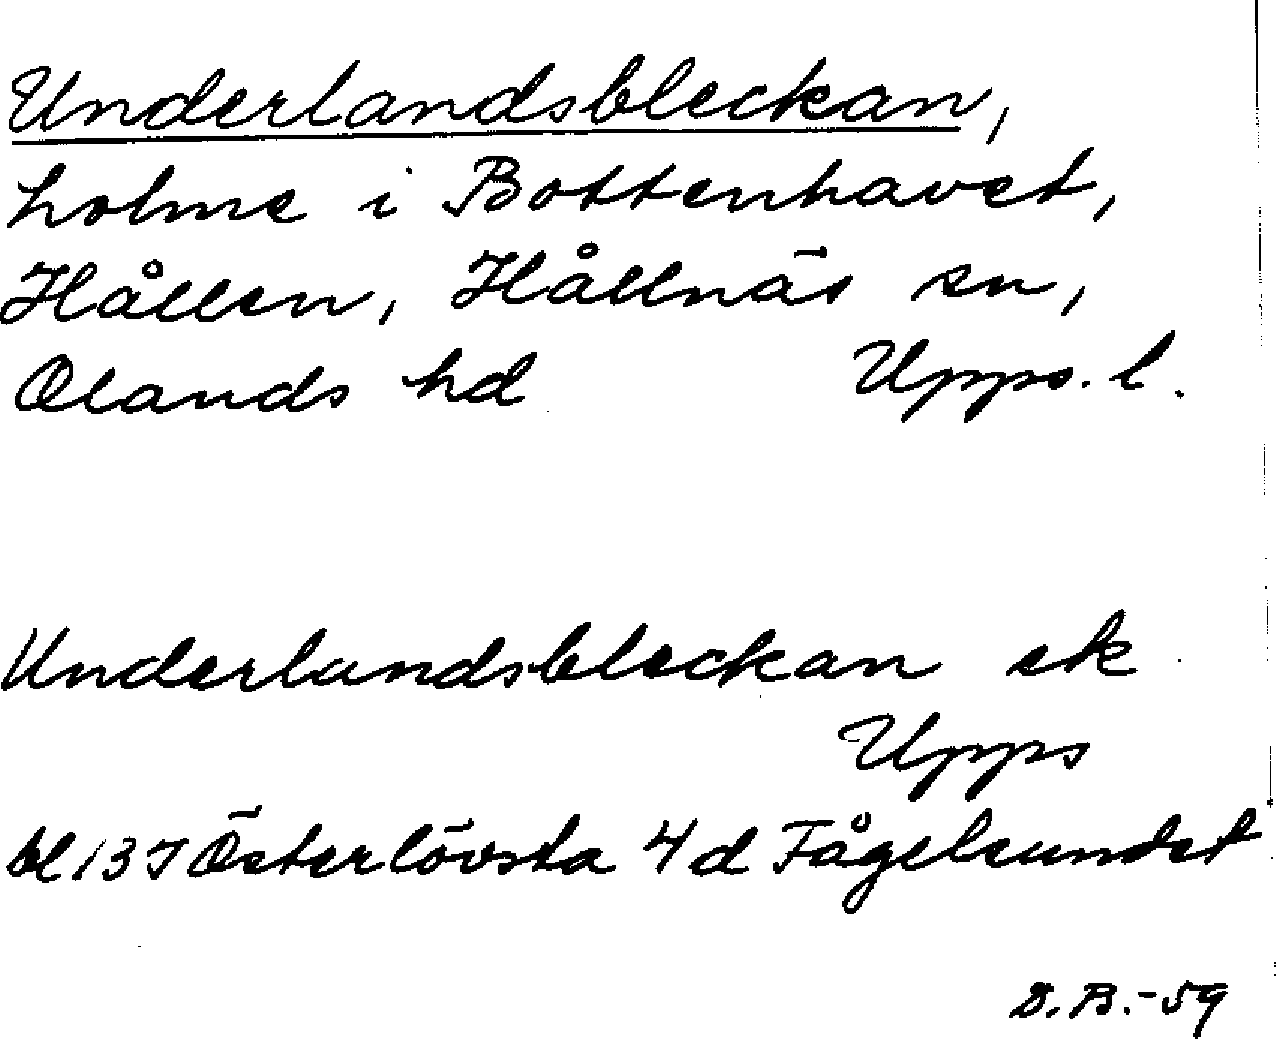 Underlandsbleckan,
holme i Bottenhavet,
Hållen, Hållnäs sn,
Olands hd Upps. l.
Underlandsbleckan ek
Upps
bl 13 I Österlövsta 4 d Fågelsundet
D.B.-59